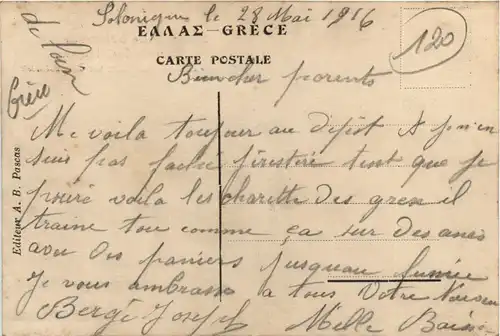 Salonique le 28 Mai 1916
ΕΛΛΑΣ—GRÈCE
CARTE POSTALE
120
Bien cher parents
Me voila toujour au dépot
suis pas faché tent que je
pouré voila les charette des grec il
traine tou comme ça sur des anes
avec des paniers jusquau fumié
Je vous ambrasse a tous Votre
Bergé Joseph Mille
Editeur A. B. Pascas